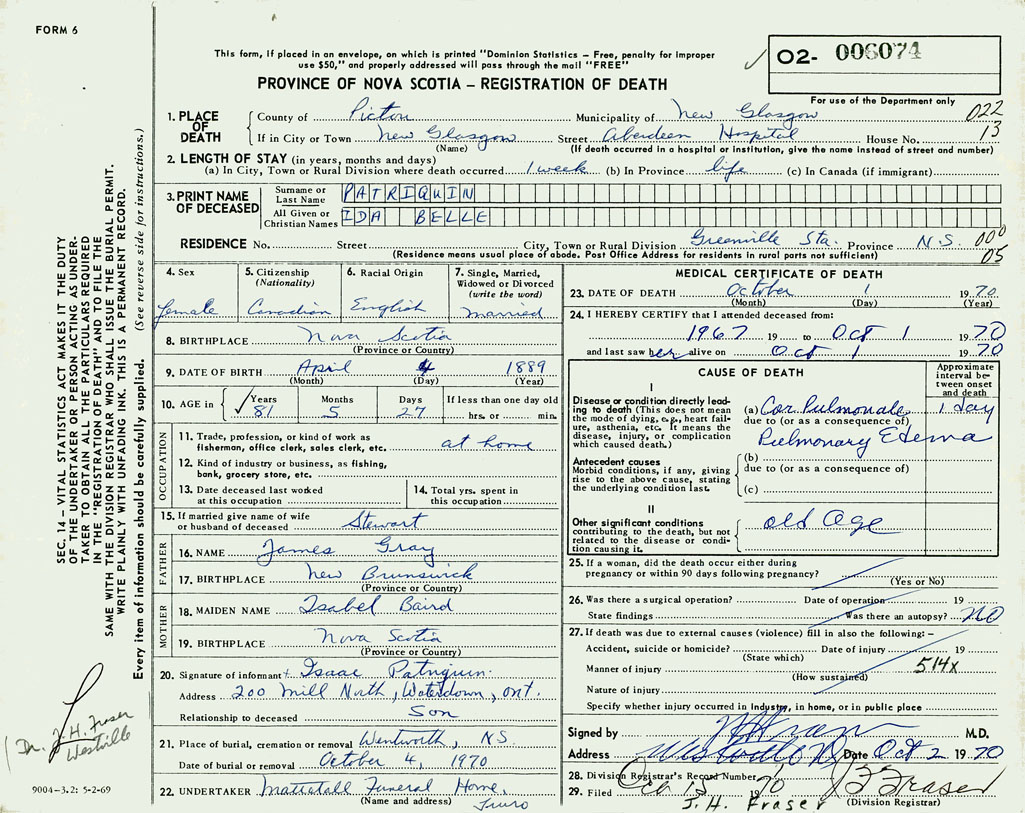 FORM 6
This form, if placed in an envelope, on which is printed "Dominion Statistics – Free, penalty for improper
use $50," and properly addressed will pass through the mail "FREE"
PROVINCE OF NOVA SCOTIA – REGISTRATION OF DEATH
02- 006074
For use of the Department only
022
13
1. PLACE OF DEATH
County of Pictou Municipality of New Glasgow
If in City or Town New Glasgow Street Aberdeen Hospital House No.
(Name) (If death occurred in a hospital or institution, give the name instead of street and number)
2. LENGTH OF STAY (in years, months and days)
(a) In City, Town or Rural Division where death occurred 1 week (b) In Province life (c) In Canada (if immigrant)
3. PRINT NAME OF DECEASED
Surname or Last Name PATRIQUIN
All Given or Christian Names IDA BELLE
RESIDENCE No. Street City, Town or Rural Division Greenville Sta. Province N.S. 000
(Residence means usual place of abode. Post Office Address for residents in rural parts not sufficient) 05
4. Sex
female
5. Citizenship (Nationality)
Canadian
6. Racial Origin
English
7. Single, Married, Widowed or Divorced (write the word)
married
8. BIRTHPLACE Nova Scotia
(Province or Country)
9. DATE OF BIRTH April 4 1889
(Month) (Day) (Year)
10. AGE in Years Months Days If less than one day old
81 5 27 hrs. or min.
OCCUPATION
11. Trade, profession, or kind of work as
fisherman, office clerk, sales clerk, etc. at home
12. Kind of industry or business, as fishing,
bank, grocery store, etc.
13. Date deceased last worked
at this occupation
14. Total yrs. spent in
this occupation
15. If married give name of wife
or husband of deceased Stewart
FATHER
16. NAME James Gray
17. BIRTHPLACE New Brunswick
(Province or Country)
MOTHER
18. MAIDEN NAME Isabel Baird
19. BIRTHPLACE Nova Scotia
(Province or Country)
20. Signature of informant + Isaac Patriquin
Address 200 Mill North, Waterdown, Ont.
Relationship to deceased Son
21. Place of burial, cremation or removal Wentworth, NS
Date of burial or removal October 4, 1970
22. UNDERTAKER Mattatall Funeral Home,
(Name and address) Truro
MEDICAL CERTIFICATE OF DEATH
23. DATE OF DEATH October 1 1970
(Month) (Day) (Year)
24. I HEREBY CERTIFY that I attended deceased from:
1967 19 to Oct 1 1970
and last saw her alive on Oct 1 1970
CAUSE OF DEATH
Approximate interval between onset and death
I
Disease or condition directly leading to death (This does not mean the mode of dying, e.g., heart failure, asthenia, etc. It means the disease, injury, or complication which caused death.)
(a) Cor Pulmonale 1 day
due to (or as a consequence of)
Pulmonary Edema
Antecedent causes
Morbid conditions, if any, giving rise to the above cause, stating the underlying condition last.
(b)
due to (or as a consequence of)
(c)
II
Other significant conditions
contributing to the death, but not related to the disease or condition causing it.
old age
25. If a woman, did the death occur either during
pregnancy or within 90 days following pregnancy?
(Yes or No)
26. Was there a surgical operation? Date of operation 19
State findings Was there an autopsy? no
27. If death was due to external causes (violence) fill in also the following: –
Accident, suicide or homicide? Date of injury 19
(State which)
Manner of injury 514X
(How sustained)
Nature of injury
Specify whether injury occurred in Industry, in home, or in public place
Signed by M.D.
Address Westville Date Oct 2 1970
28. Division Registrar's Record Number
29. Filed Oct 15 1970
J.H. Fraser (Division Registrar)
SEC. 14 – VITAL STATISTICS ACT MAKES IT THE DUTY
OF THE UNDERTAKER OR PERSON ACTING AS UNDER-
TAKER TO OBTAIN ALL THE PARTICULARS REQUIRED
IN THE "REGISTRATION OF DEATH" AND TO FILE THE
SAME WITH THE DIVISION REGISTRAR WHO SHALL ISSUE THE BURIAL PERMIT.
WRITE PLAINLY WITH UNFADING INK. THIS IS A PERMANENT RECORD.
Every item of information should be carefully supplied. (See reverse side for instructions.)
Dr. J.H. Fraser
Westville
9004-3.2: 5-2-69